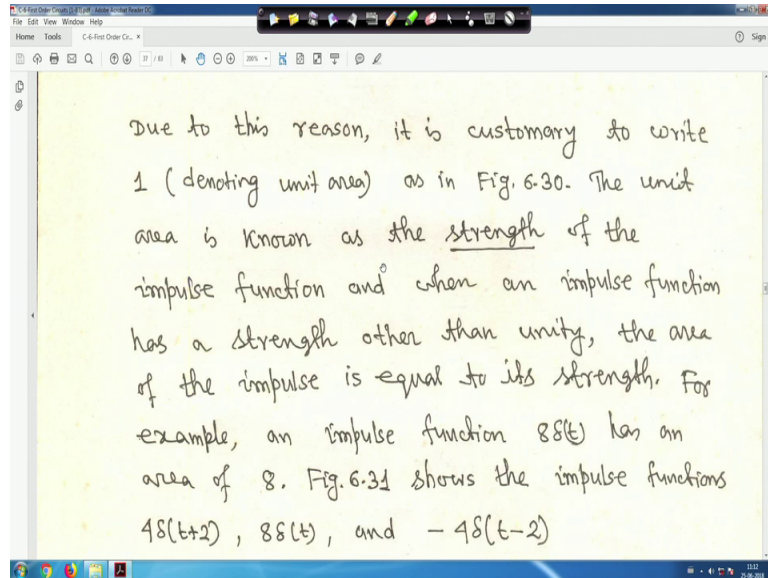 C-6-First Order Circuits [1-83].pdf - Adobe Acrobat Reader DC
File Edit View Window Help
Home Tools C-6-First Order Cir... × Sign
37 / 83 200%
Due to this reason, it is customary to write
1 (denoting unit area) as in Fig. 6.30. The unit
area is known as the strength of the
impulse function and when an impulse function
has a strength other than unity, the area
of the impulse is equal to its strength. For
example, an impulse function 8δ(t) has an
area of 8. Fig. 6.31 shows the impulse functions
4δ(t+2), 8δ(t), and - 4δ(t-2)
11:12
25-06-2018